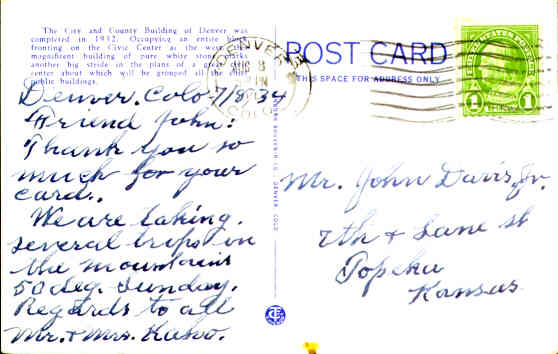 The City and County Building of Denver was
completed in 1932. Occupying an entire block
fronting on the Civic Center at the west this
magnificent building of pure white stone marks
another big stride in the plans of a great civic
center about which will be grouped all the other
public buildings.
POST CARD
THIS SPACE FOR ADDRESS ONLY
DENVER
COLO
1
1
Denver. Colo 7/8/34
Friend John:
Thank you so
much for your
card.
We are taking
several trips in
the mountains
50 deg. Sunday.
Regards to all
Mr. & Mrs.
Mr. John Davis, Jr.
7th & Lane st
Topeka
Kansas